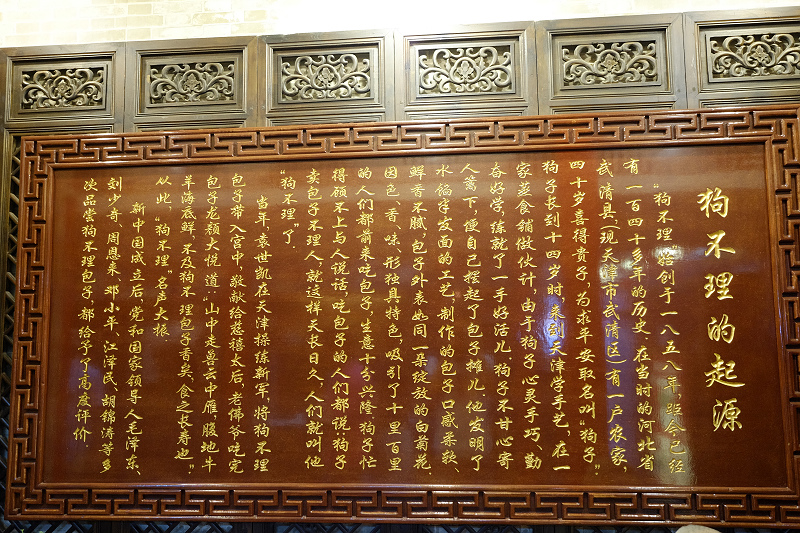 狗不理的起源
"狗不理"始创于一八五八年,距今已经
有一百四十多年的历史,在当时的河北省
武清县,(现天津市武清区)有一户农家,
四十岁喜得贵子,为求平安取名叫"狗子".
狗子长到十四岁时,来到天津学手艺,在一
家蒸食铺做伙计,由于狗子心灵手巧、勤
奋好学,练就了一手好活儿,狗子不甘心寄
人篱下,便自己摆起了包子摊儿,他发明了
水馅半发面的工艺,制作的包子口感柔软、
鲜香不腻,包子外表如同一朵绽放的白菊花,
因色、香、味、形独具特色,吸引了十里百里
的人们都前来吃包子,生意十分兴隆,狗子忙
得顾不上与人说话,吃包子的人们都说:狗子
卖包子不理人,就这样天长日久,人们就叫他
"狗不理"了.
当年,袁世凯在天津操练新军,将狗不理
包子带入宫中,敬献给慈禧太后,老佛爷吃完
包子龙颜大悦,道:"山中走兽云中雁,腹地牛
羊海底鲜,不及狗不理包子香矣,食之长寿也."
从此,"狗不理"名声大振
新中国成立后,党和国家领导人毛泽东、
刘少奇、周恩来、邓小平、江泽民、胡锦涛等多
次品尝狗不理包子,都给予了高度评价.